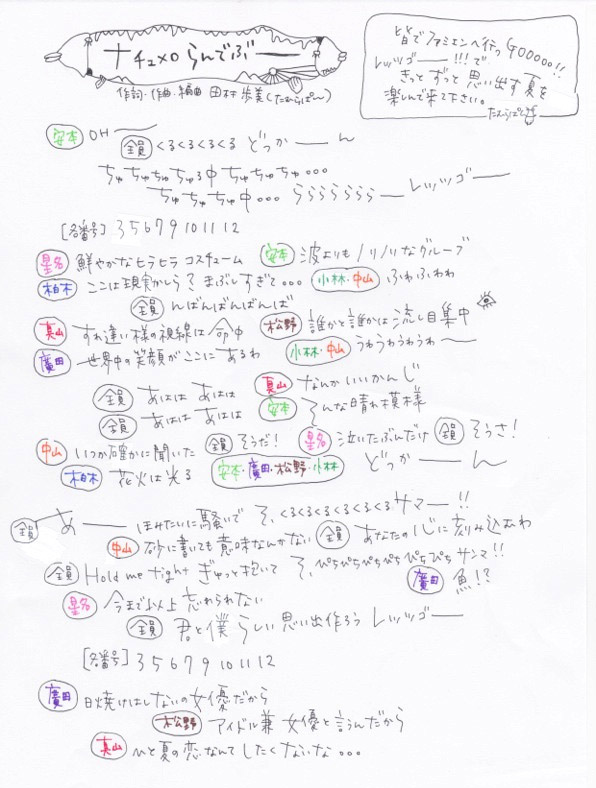 ナチュメロらんでぶー
作詞・作曲・編曲 田村歩美(たむらぱん)
皆でファミエンへ行っGOOOOO!!
レッツゴー!!!で
きっとずっと思い出す夏を
楽しんで来て下さい。
たむらぱん
安本 OH〜
全員 くるくるくるくる どっかーーん
ちゅちゅちゅちゅる中 ちゅちゅちゅ...
ちゅちゅちゅ中... ららららららら〜レッツゴー
[各番号] 3 5 6 7 9 10 11 12
星名 鮮やかなヒラヒラ コスチューム 安本 波よりもノリノリなグルーブ
柏木 ここは現実かしら?まぶしすぎて... 小林・中山 ふわふわわ
全員 んばんばんばんば
真山 すれ違い様の視線は命中 松野 誰かと誰かは流し目集中
廣田 世界中の笑顔がここにあるわ 小林・中山 うわうわうわうわ〜
全員 あはは あはは 真山 なんかいいかんじ
全員 あはは あはは 安本 そんな晴れ模様
中山 いつか確かに聞いた 全員 そうだ! 星名 泣いたぶんだけ 全員 そうさ!
柏木 花火は光る 安本・廣田・松野・小林 どっかーーん
全員 あーーほみたいに騒いで そ、くるくるくるくるくるサマー!!
中山 砂に書いても意味なんかない 全員 あなたの心に刻み込むわ
全員 Hold me tight ぎゅっと抱いて そ、ぴちぴちぴちぴちぴちぴちサンマ!!
廣田 魚!?
星名 今まで以上忘れられない
全員 君と僕らしい思い出作ろう レッツゴー
[各番号] 3 5 6 7 9 10 11 12
廣田 日焼けはしないの女優だから
松野 アイドル兼女優と言うんだから
真山 ひと夏の恋なんてしたくないな...